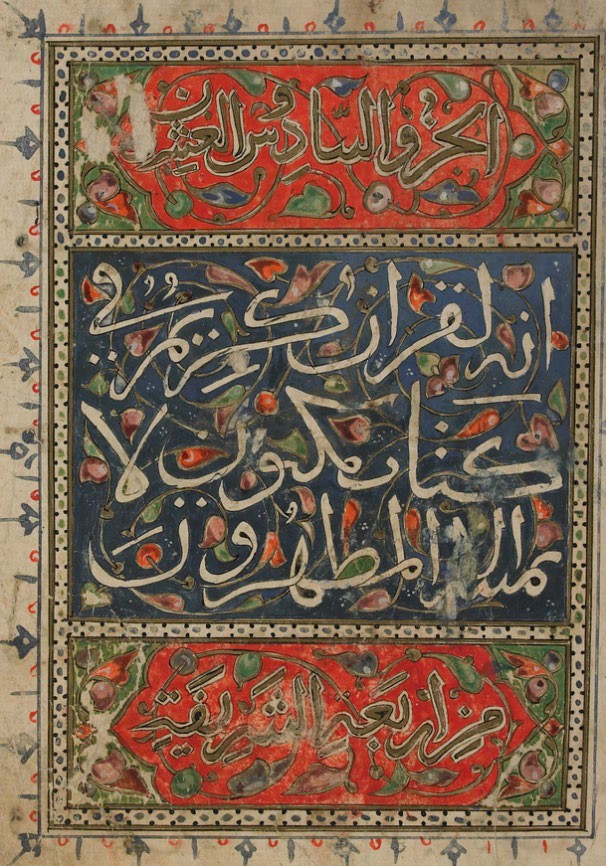 الجزو السّادس والعشرون
انه لقران كريم في
كتاب مكنون لا
يمسه الا المطهرون
من اربعة الشريفة